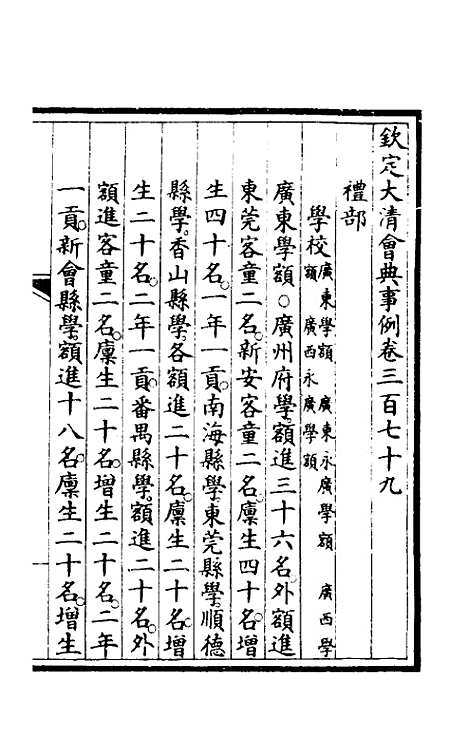 欽定大清會典事例卷三百七十九
禮部
學校廣東學額 廣東永廣學額 廣西學
額 廣西永廣學額
廣東學額○廣州府學。額進三十六名。外額進
東莞客童二名。新安客童二名。廩生四十名。增
生四十名。一年一貢。南海縣學。東莞縣學。順德
縣學。香山縣學。各額進二十名。廩生二十名。增
生二十名。二年一貢。番禺縣學。額進二十名。外
額進客童二名。廩生二十名。增生二十名。二年
一貢。新會縣學。額進十八名。廩生二十名。增生